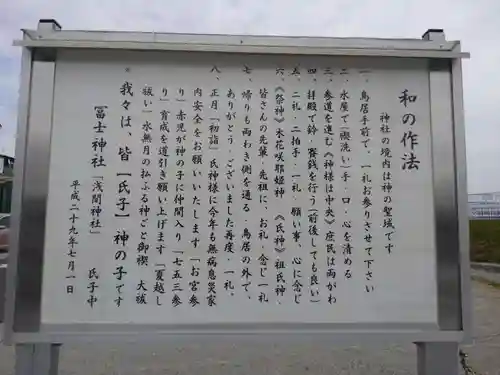 和の作法
神社の境内は神の聖域です
一、鳥居手前で、一礼お参りさせて下さい
二、水屋で「禊洗い」手・口・心を清める
三、参道を進む《神様は中央》庶民は両がわ
四、拝殿で鈴、賽銭を行う（前後しても良い）
五、二礼・二拍手・一礼 願い事、心に念じ
六、《祭神》木花咲耶姫神 《氏神》祖氏神、
皆さんの先輩・先祖に、お礼、念じ一礼
七、帰りも両わき側を通る 鳥居の外で、
ありがとう・ございました再度、一礼、
八、正月「初詣」氏神様に今年も無病息災家
内安全をお願いいたします「お宮参
り」赤児が神の子に仲間入り「七五三参
り」育成を道引き願い上げます「夏越し
祓い」水無月の払ふる神ごと御禊 大祓
* 我々は、皆【氏子】神の子です
冨士神社「浅間神社」 氏子中
平成二十九年七月一日